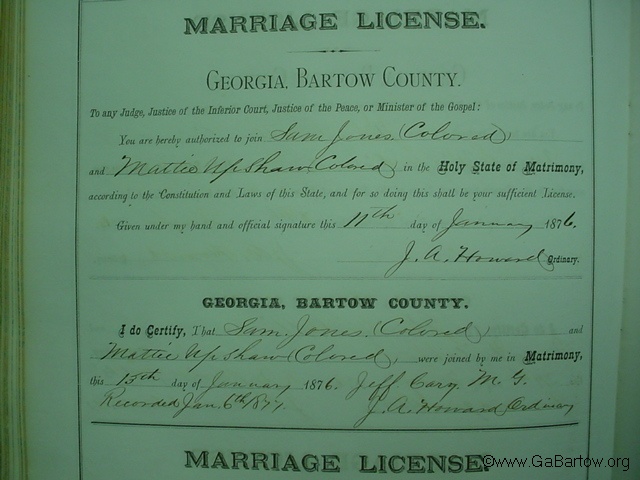 MARRIAGE LICENSE.
GEORGIA, BARTOW COUNTY.
To any Judge, Justice of the Inferior Court, Justice of the Peace, or Minister of the Gospel:
You are hereby authorized to join Sam Jones (Colored)
and Mattie Up Shaw (Colored) in the Holy State of Matrimony,
according to the Constitution and Laws of this State, and for so doing this shall be your sufficient License.
Given under my hand and official signature this 11th day of January 1876.
J. A. Howard Ordinary.
GEORGIA, BARTOW COUNTY.
I do Certify, That Sam Jones (Colored) and
Mattie Up Shaw (Colored) were joined by me in Matrimony,
this 13th day of January 1876. Jeff Cary M. G.
Recorded Jan. 6th 1877. J. A. Howard Ordinary
MARRIAGE LICENSE.
©www.GaBartow.org